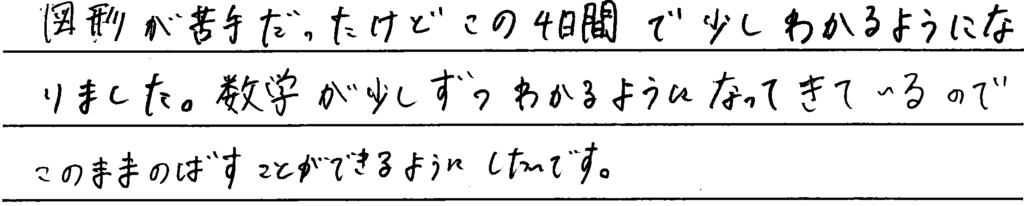 図形が苦手だったけどこの4日間で少しわかるようにな
りました。数学が少しずつわかるようになってきているので
このままのばすことができるようにしたいです。